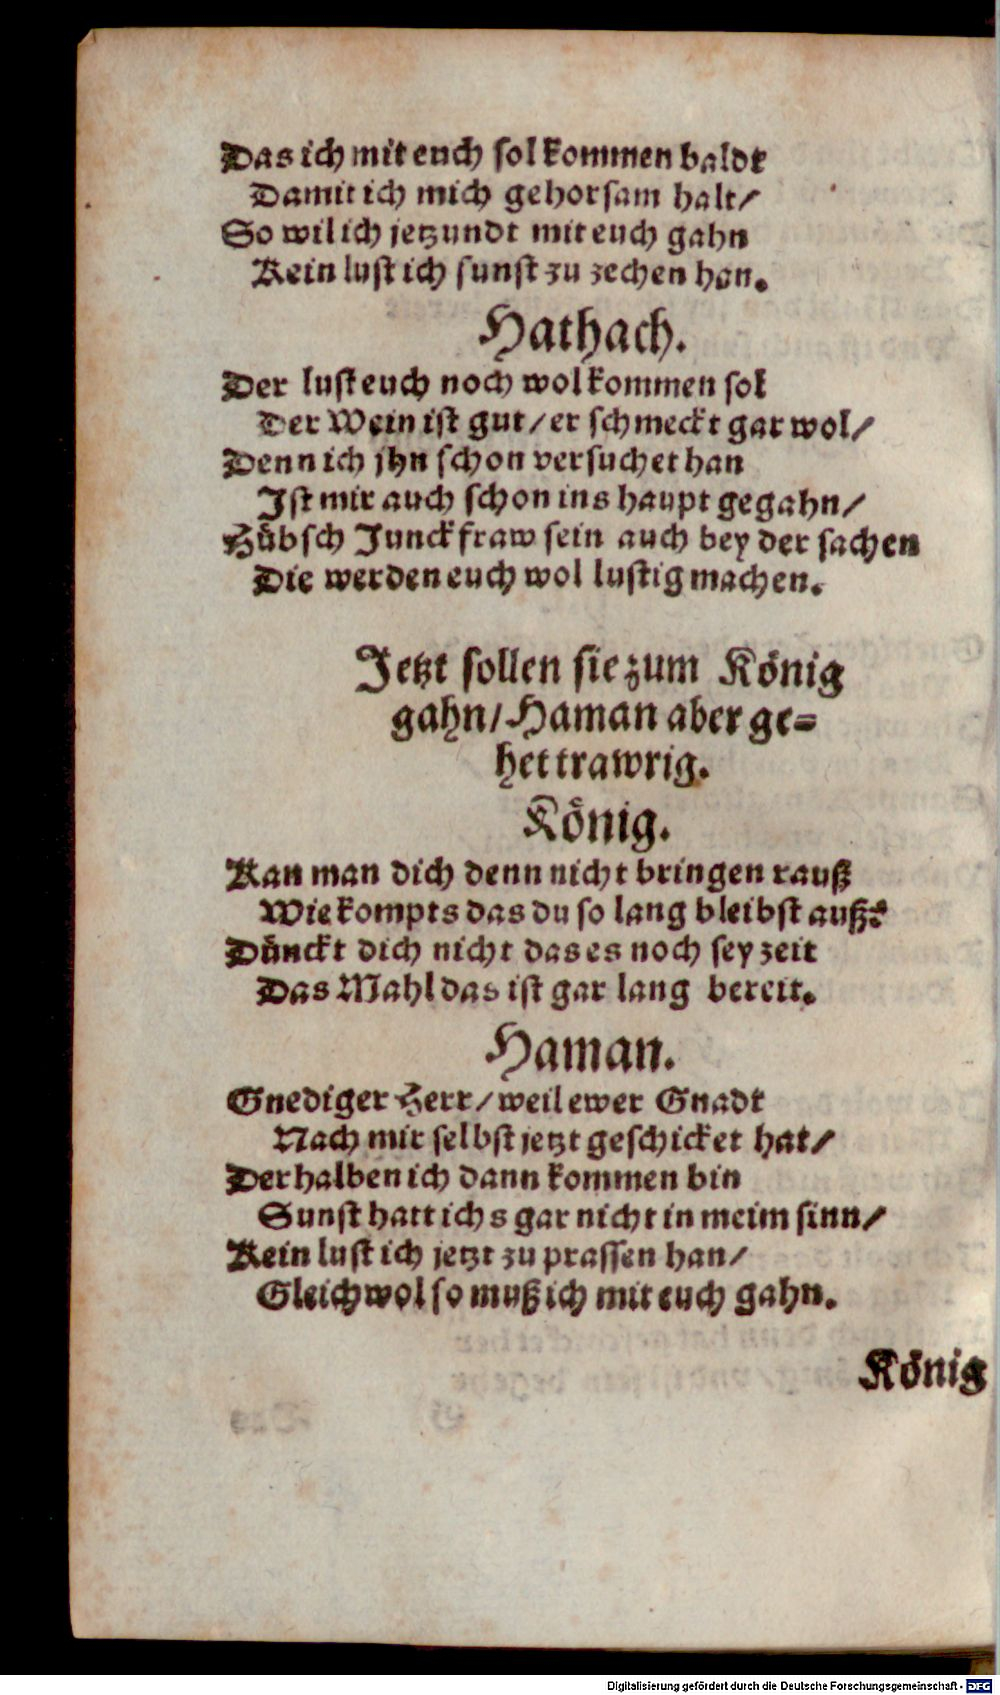 Das ich mit euch sol kommen baldt
Damit ich mich gehorsam halt/
So wil ich jetzundt mit euch gahn
Kein lust ich sunst zu zechen han.
Hathach.
Der lust euch noch wol kommen sol
Der Wein ist gut/ er schmeckt gar wol/
Denn ich jhn schon versuchet han
Ist mir auch schon ins haupt gegahn/
Hübsch Junckfraw sein auch bey der sachen
Die werden euch wol lustig machen.
Jetzt sollen sie zum König
gahn/ Haman aber ge=
het trawrig.
König.
Kan man dich denn nicht bringen rauß
Wie kompts das du so lang bleibst auß?
Dünckt dich nicht das es noch sey zeit
Das Mahl das ist gar lang bereit.
Haman.
Gnediger Herr/ weil ewer Gnadt
Nach mir selbst jetzt geschicket hat/
Derhalben ich dann kommen bin
Sunst hatt ichs gar nicht in meim sinn/
Kein lust ich jetzt zu prassen han/
Gleichwol so muß ich mit euch gahn.
König
Digitalisierung gefördert durch die Deutsche Forschungsgemeinschaft - DFG